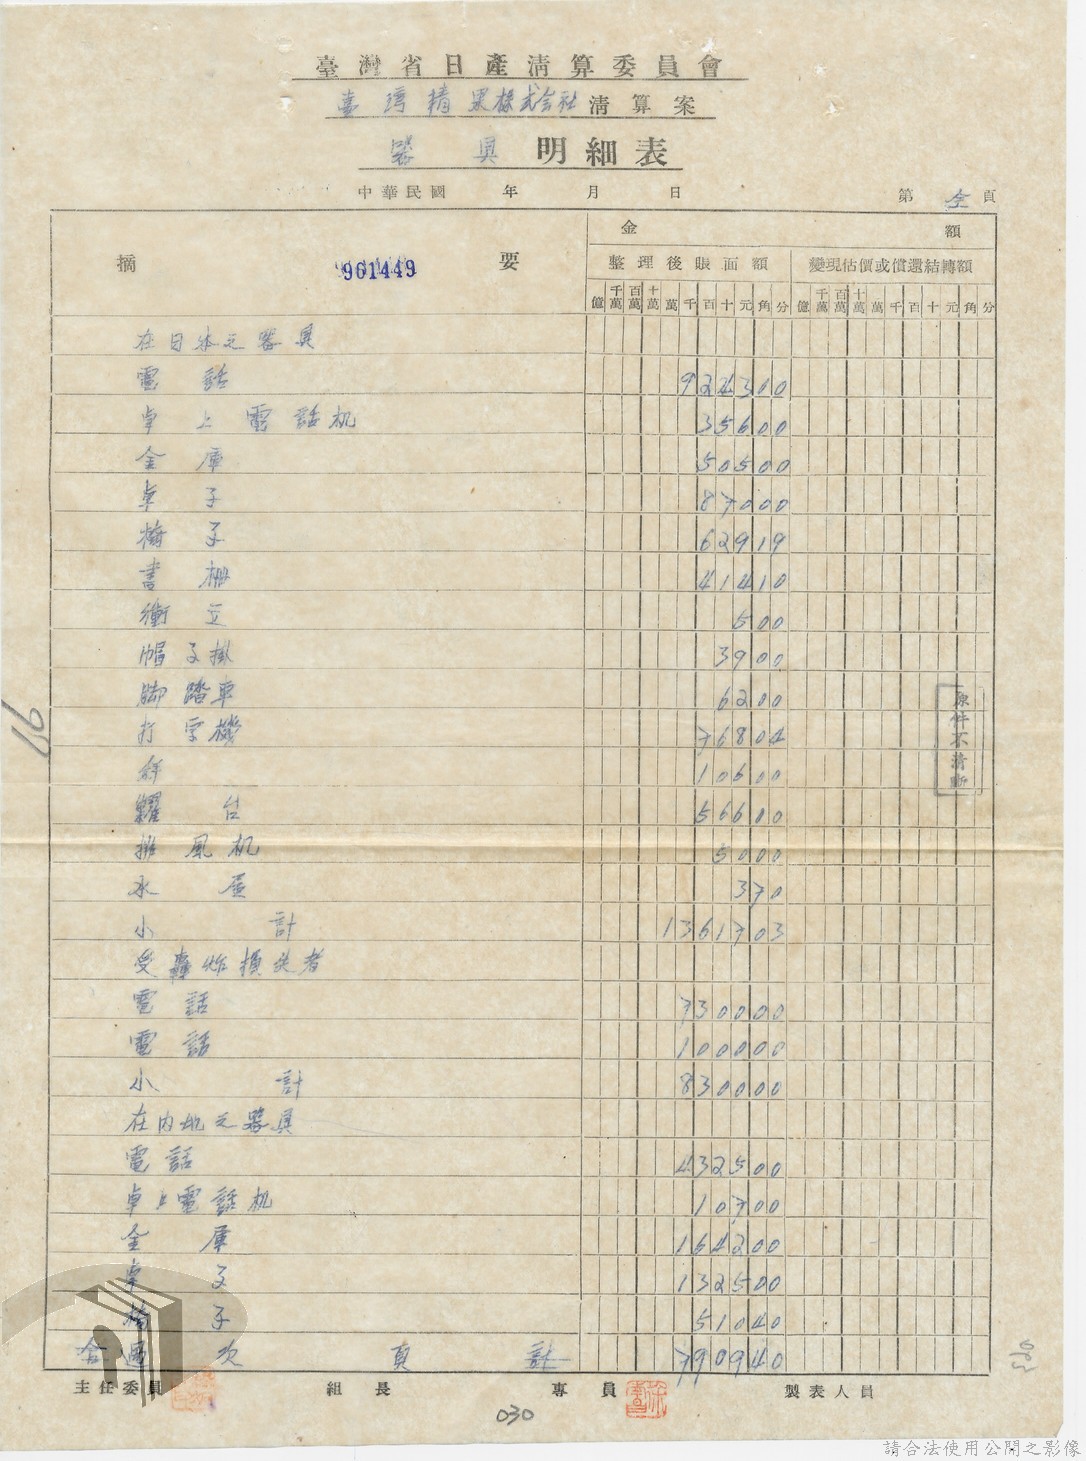 臺灣省日產清算委員會
臺灣精果株式会社清算案
器具明細表
中華民國 年 月 日 第 全 頁
摘要 901449 金額
整理後賬面額 變現估價或償還結轉額
億 千萬 百萬 十萬 萬 千 百 十 元 角 分 億 千萬 百萬 十萬 萬 千 百 十 元 角 分
在日本之器具
電話 924300
卓上電話机 35600
金庫 50500
卓子 87000
椅子 62919
書棚 41410
衝立 500
帽子掛 3900
脚踏車 6200
打字機 76804
10600
台 56600
排風机 5000
水 370
小計 1361703
受轟炸損失者
電話 730000
電話 100000
小計 830000
在內地之器具
電話 432500
卓上電話机 10700
金庫 164200
卓子 132500
椅子 51040
合 次頁計 790940
主任委員 組長 專員 製表人員
原件不清晰
97
030
030
請合法使用公開之影像